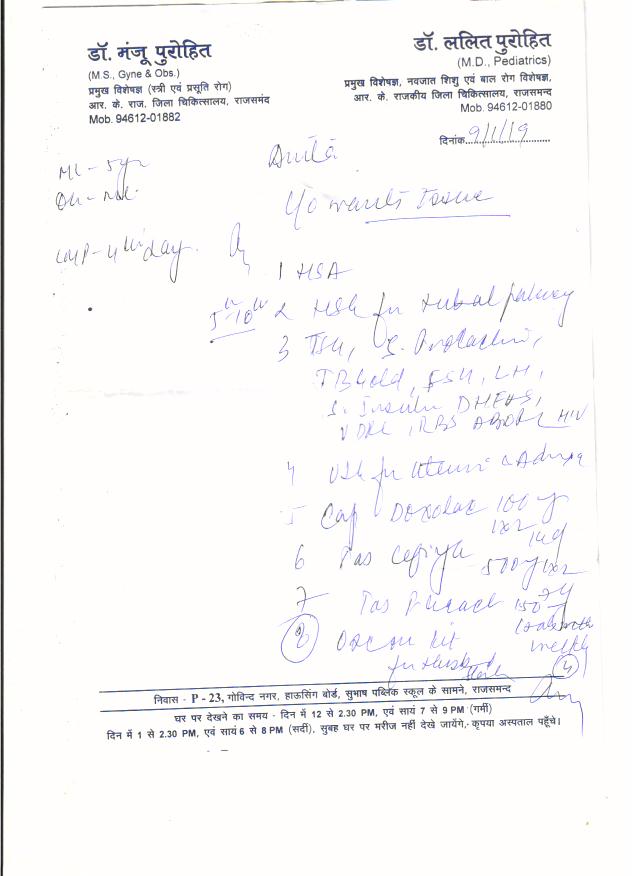 डॉ. मंजू पुरोहित
(M.S., Gyne & Obs.)
प्रमुख विशेषज्ञ (स्त्री एवं प्रसूति रोग)
आर. के. राज. जिला चिकित्सालय, राजसमंद
Mob. 94612-01882
डॉ. ललित पुरोहित
(M.D., Pediatrics)
प्रमुख विशेषज्ञ, नवजात शिशु एवं बाल रोग विशेषज्ञ,
आर. के. राजकीय जिला चिकित्सालय, राजसमन्द
Mob. 94612-01880
दिनांक 9/1/19
ML - 5yr
LMP - 4th day.
wants issue
1 HSA
5th 10th 2 HSG for tubal patency
3 TSH, S. Prolactin,
TB Gold, FSH, LH,
S. Insulin DHEAS,
VDRL, RBS HIV
4 USG for Uterus & Adnexa
5 Cap 100
1x2
6 Tab
500 1x2
7 Tab 150
weekly
8 kit
for Husband
4
निवास - P - 23, गोविन्द नगर, हाऊसिंग बोर्ड, सुभाष पब्लिक स्कूल के सामने, राजसमन्द
घर पर देखने का समय - दिन में 12 से 2.30 PM, एवं सायं 7 से 9 PM (गर्मी)
दिन में 1 से 2.30 PM, एवं सायं 6 से 8 PM (सर्दी), सुबह घर पर मरीज नहीं देखे जायेंगे,- कृपया अस्पताल पहूँचे।